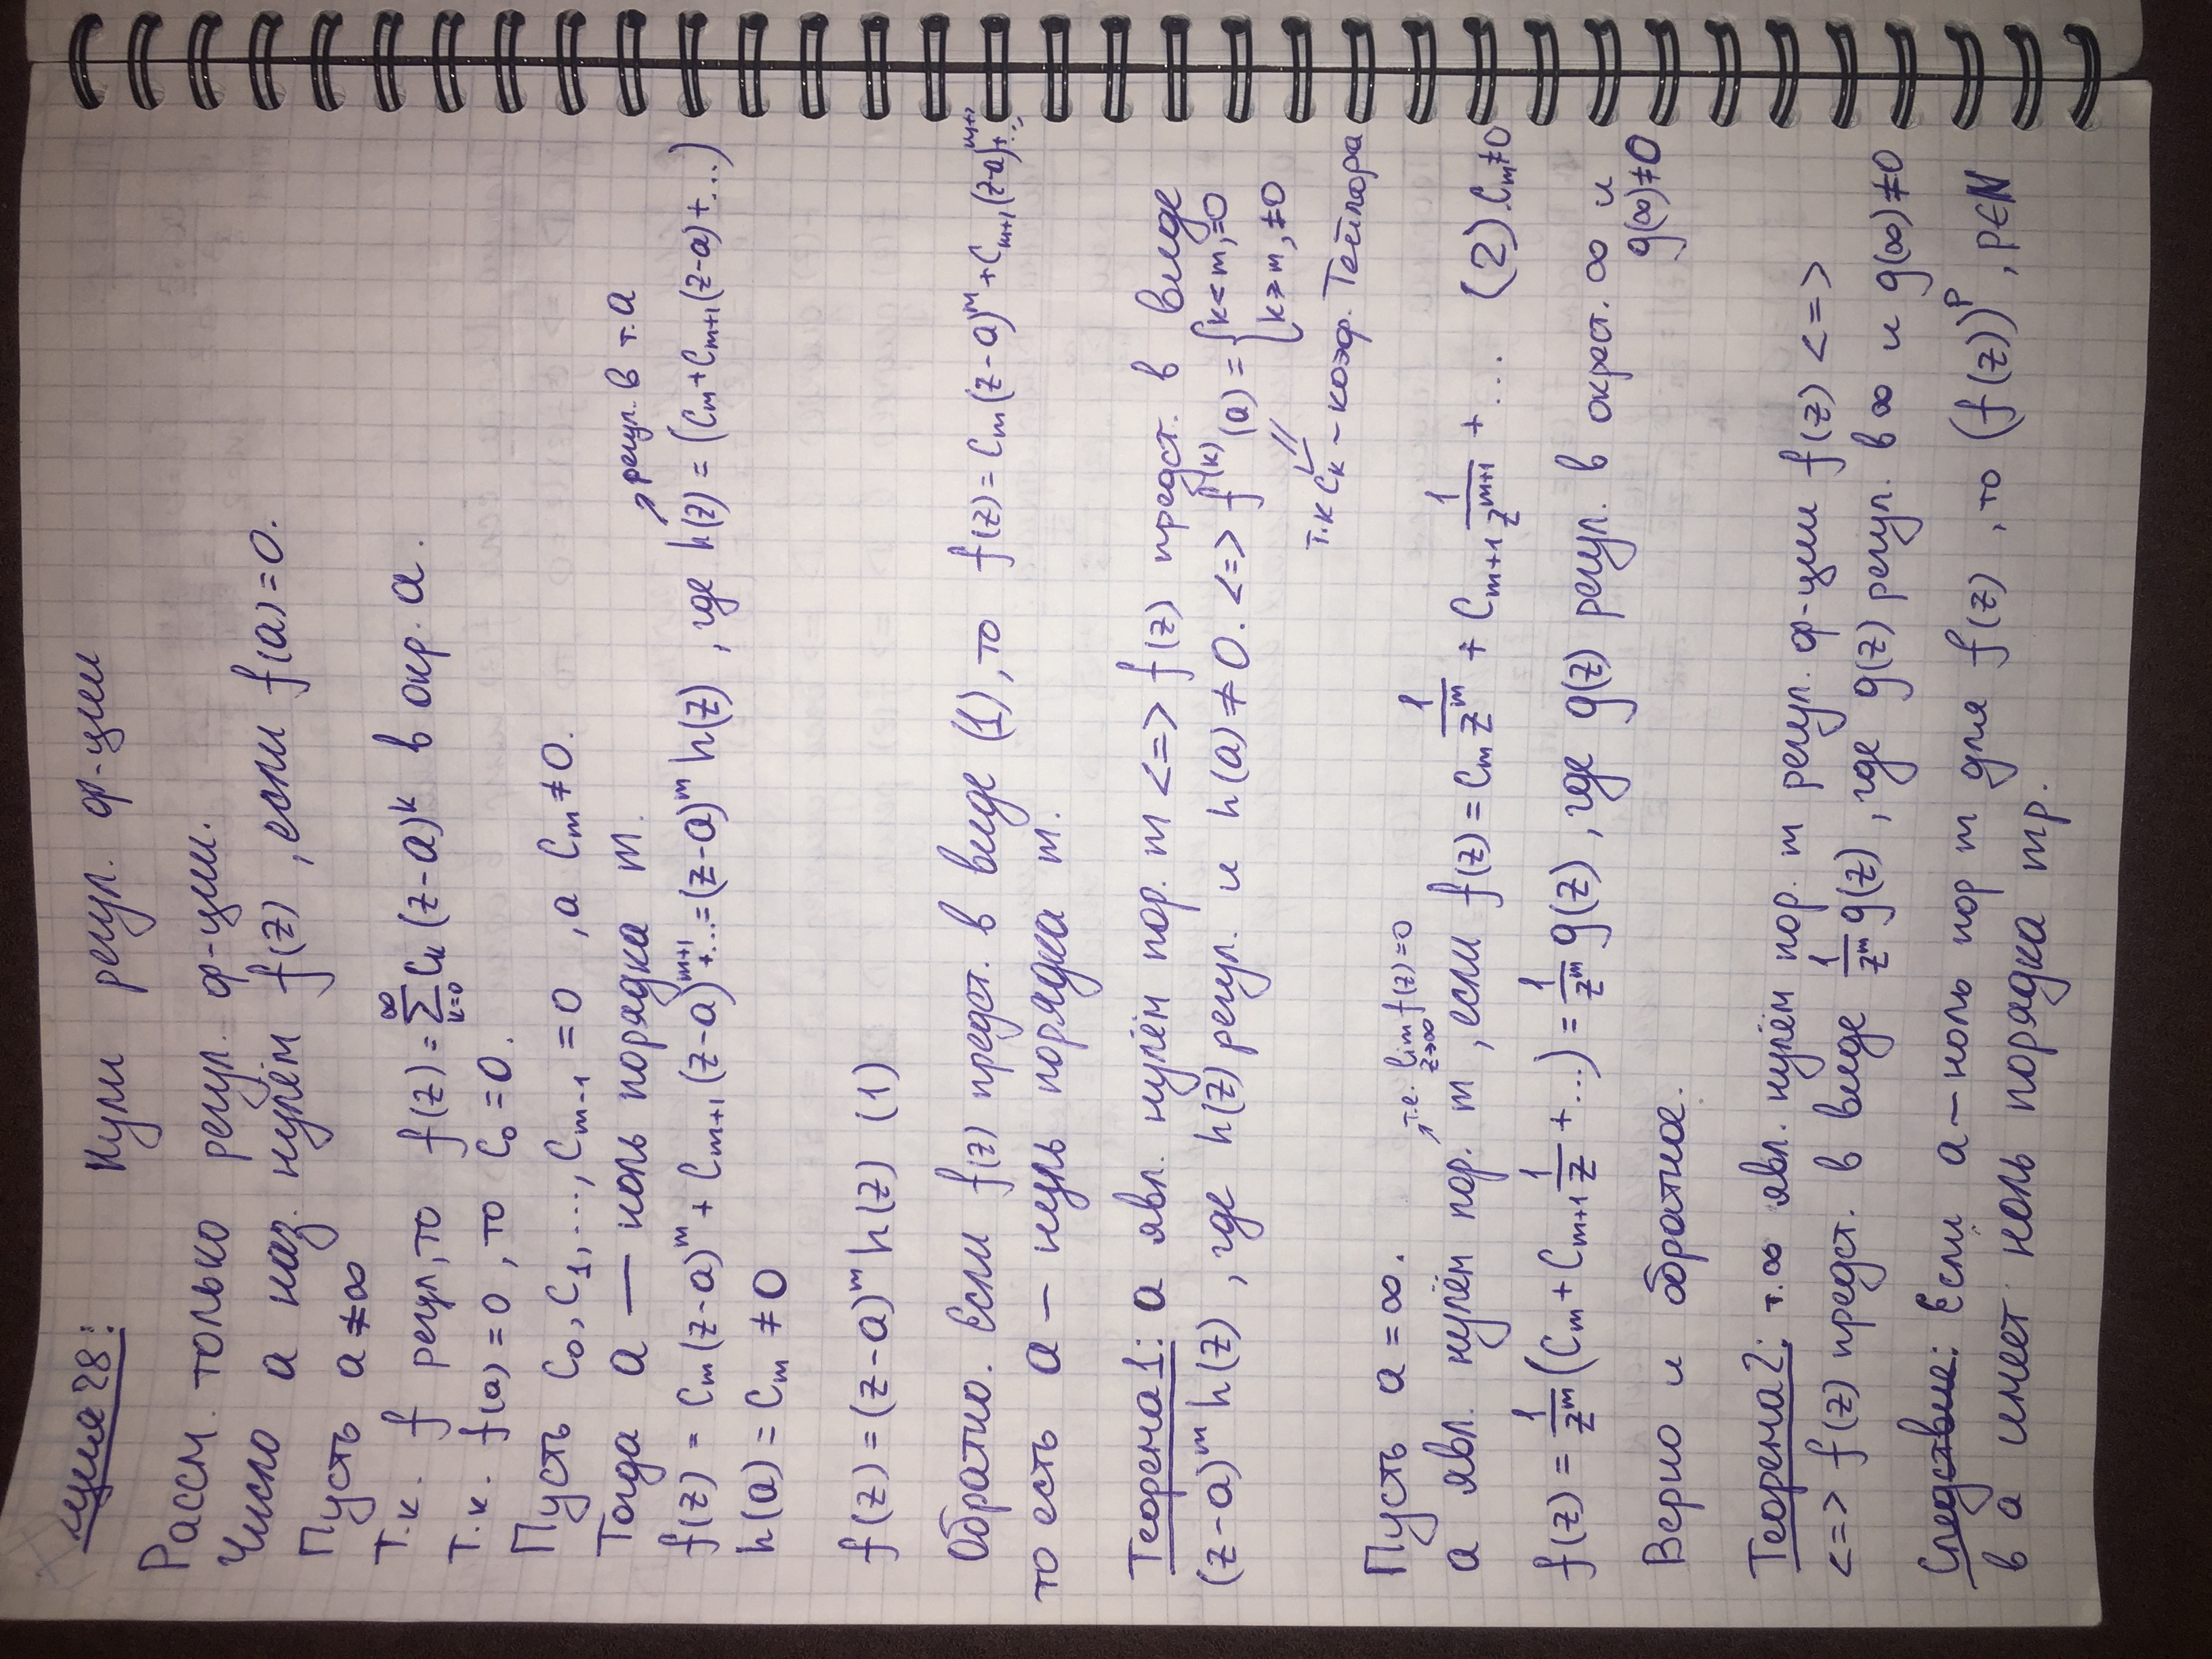 ция 28: Нули регул. ф-ции
Рассм. только регул. ф-ции.
Число a наз. нулём f(z), если f(a)=0.
Пусть a≠∞
Т.к. f регул, то f(z) = ∑_{k=0}^{∞} C_k (z-a)^k в окр. a.
Т.к. f(a) = 0, то C_0 = 0.
Пусть C_0, C_1, ..., C_{m-1} = 0, а C_m ≠ 0.
Тогда a — ноль порядка m.
регул. в т. a
f(z) = C_m (z-a)^m + C_{m+1} (z-a)^{m+1} + ... = (z-a)^m h(z), где h(z) = (C_m + C_{m+1}(z-a) + ...)
h(a) = C_m ≠ 0
f(z) = (z-a)^m h(z) (1)
Обратно. Если f(z) предст. в виде (1), то f(z) = C_m (z-a)^m + C_{m+1} (z-a)^{m+1} + ...,
то есть a — нуль порядка m.
Теорема 1: a явл. нулём пор. m <=> f(z) предст. в виде
(z-a)^m h(z), где h(z) регул. и h(a) ≠ 0. <=> f^{(k)}(a) = { k<m, =0
k⩾m, ≠0
т.к C_k – коэф. Тейлора
Пусть a = ∞.
т.е. lim_{z→∞} f(z) = 0
a явл. нулём пор. m, если f(z) = C_m 1/z^m + C_{m+1} 1/z^{m+1} + ... (2). C_m ≠ 0
f(z) = 1/z^m (C_m + C_{m+1} 1/z + ...) = 1/z^m g(z), где g(z) регул. в окрест. ∞ и
g(∞) ≠ 0
Верно и обратное.
Теорема 2: т. ∞ явл. нулём пор. m регул. ф-ции f(z) <=>
<=> f(z) предст. в виде 1/z^m g(z), где g(z) регул. в ∞ и g(∞) ≠ 0
Следствие: Если a — ноль пор m для f(z), то (f(z))^p, p∈N
в a имеет ноль порядка mp.